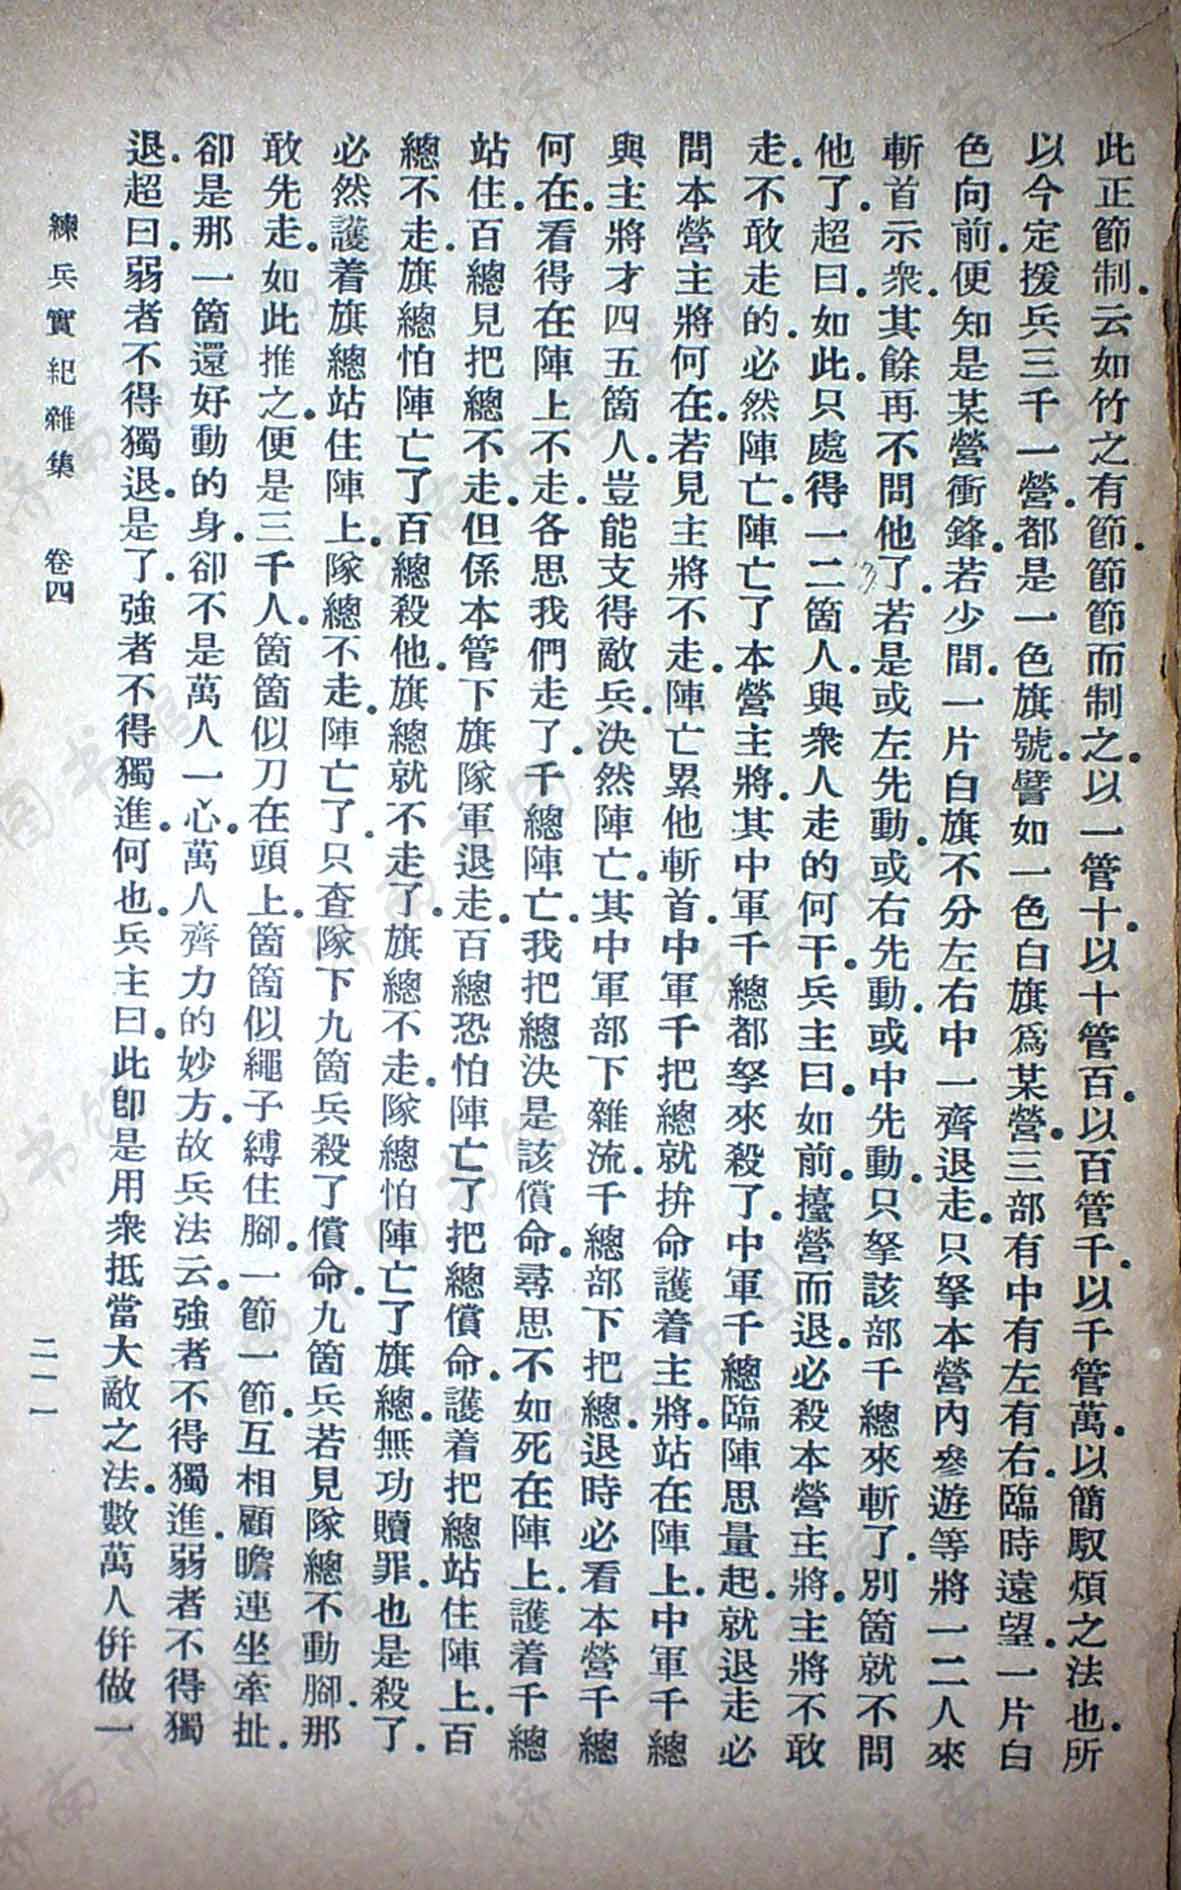 此正節制。云如竹之有節。節節而制之。以一管十。以十管百。以百管千。以千管萬。以簡馭煩之法也。所
以今定援兵三千一營。都是一色旗號。譬如一色白旗爲某營。三部有中有左有右。臨時遠望。一片白
色向前。便知是某營衝鋒。若少間。一片白旗不分左右中一齊退走。只拏本營內參遊等將一二人來
斬首示衆。其餘再不問他了。若是或左先動。或右先動。或中先動。只拏該部千總來斬了。別箇就不問
他了。超曰。如此。只處得一二箇人。與衆人走的何干。兵主曰。如前。擡營而退。必殺本營主將。主將不敢
走。不敢走的。必然陣亡。陣亡了本營主將。其中軍千總都拏來殺了。中軍千總臨陣思量起。就退走必
問本營主將何在。若見主將不走。陣亡累他斬首。中軍千把總就拚命護着主將。站在陣上。中軍千總
與主將才四五箇人。豈能支得敵兵。決然陣亡。其中軍部下雜流。千總部下把總。退時必看本營千總
何在。看得在陣上不走。各思我們走了。千總陣亡。我把總決是該償命。尋思不如死在陣上。護着千總
站住。百總見把總不走。但係本管下旗隊軍退走。百總恐怕陣亡了把總償命。護着把總站住陣上。百
總不走。旗總怕陣亡了百總殺他。旗總就不走了。旗總不走。隊總怕陣亡了旗總。無功贖罪。也是殺了。
必然護着旗總站住陣上。隊總不走。陣亡了。只查隊下九箇兵殺了償命。九箇兵若見隊總不動腳。那
敢先走。如此推之。便是三千人。箇箇似刀在頭上。箇箇似繩子縛住腳。一節一節。互相顧瞻連坐牽扯。
卻是那一箇還好動的身。卻不是萬人一心。萬人齊力的妙方。故兵法云。強者不得獨進。弱者不得獨
退。超曰。弱者不得獨退。是了。強者不得獨進。何也。兵主曰。此卽是用衆抵當大敵之法。數萬人倂做一
練兵實紀雜集 卷四
二一一